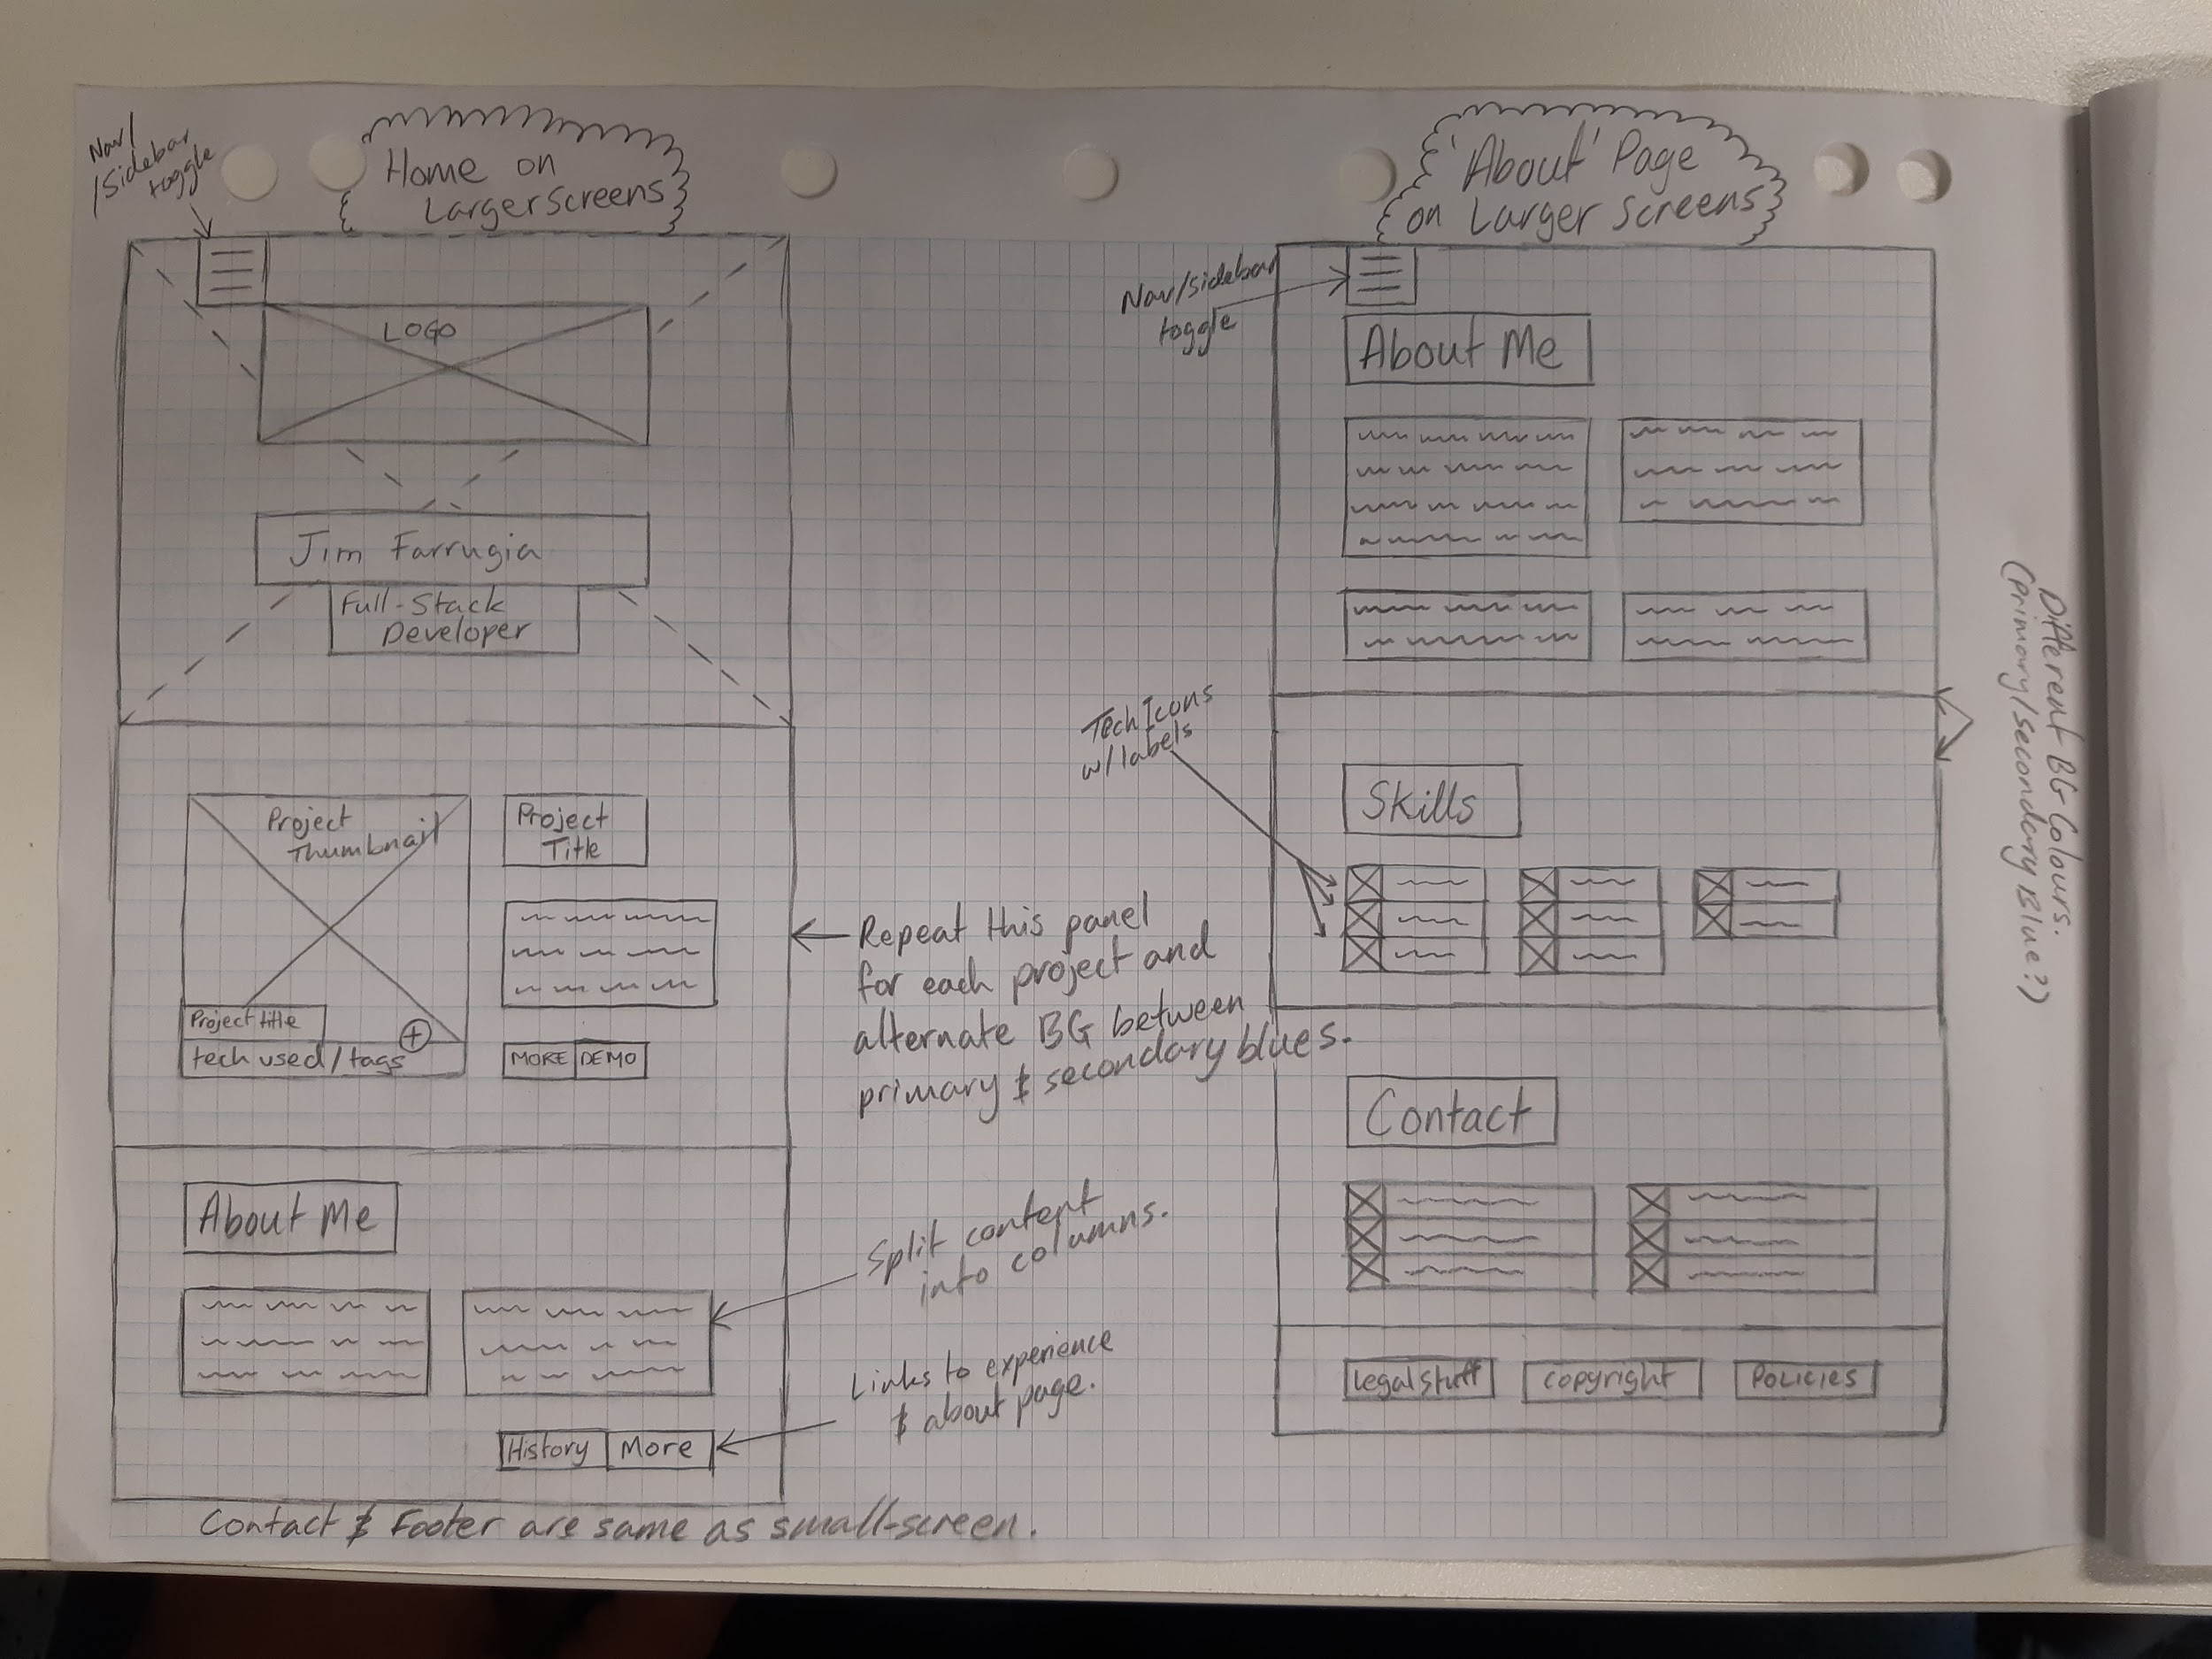 Nav/
/Sidebar
toggle
Home on
Larger Screens
LOGO
Jim Farrugia
Full-Stack
Developer
Project
Thumbnail
Project title
tech used/tags
Project
Title
MORE
DEMO
Repeat this panel
for each project and
alternate BG between
primary & secondary blues.
About Me
Split content
into columns.
Links to experience
& about page.
History
More
Contact & Footer are same as small-screen.
'About' Page
on Larger Screens
Nav/sidebar
toggle
About Me
Different BG Colours.
(primary/secondary Blue?)
Tech Icons
w/labels
Skills
Contact
Legal Stuff
Copyright
Policies